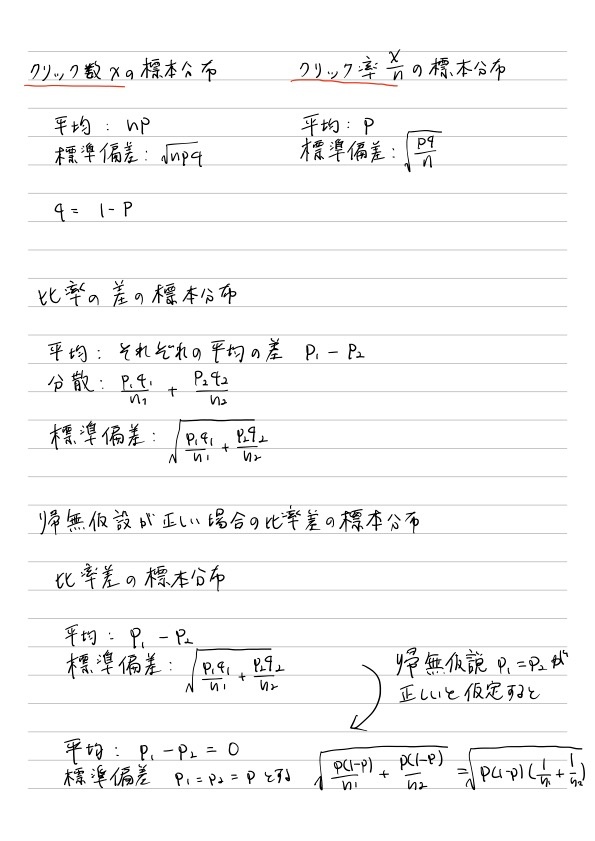 クリック数 x の標本分布
クリック率 x/n の標本分布
平均 : np
標準偏差 : √npq
平均 : p
標準偏差 : √(pq/n)
q = 1 - p
比率の差の標本分布
平均 : それぞれの平均の差 p₁ - p₂
分散 : p₁q₁/n₁ + p₂q₂/n₂
標準偏差 : √(p₁q₁/n₁ + p₂q₂/n₂)
帰無仮設が正しい場合の比率差の標本分布
比率差の標本分布
平均 : p₁ - p₂
標準偏差 : √(p₁q₁/n₁ + p₂q₂/n₂)
帰無仮説 p₁ = p₂ が
正しいと仮定すると
平均 : p₁ - p₂ = 0
標準偏差 p₁ = p₂ = p とする √(p(1-p)/n₁ + p(1-p)/n₂) = √(p(1-p)(1/n₁ + 1/n₂))